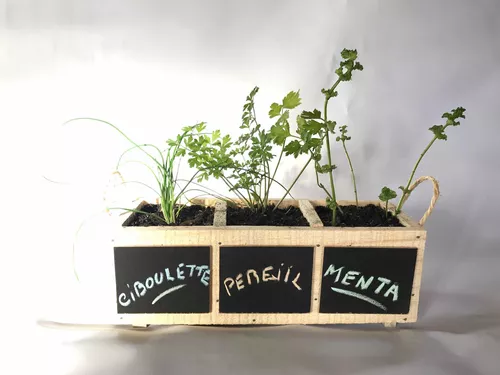 CIBOULETTE
PEREJIL
MENTA